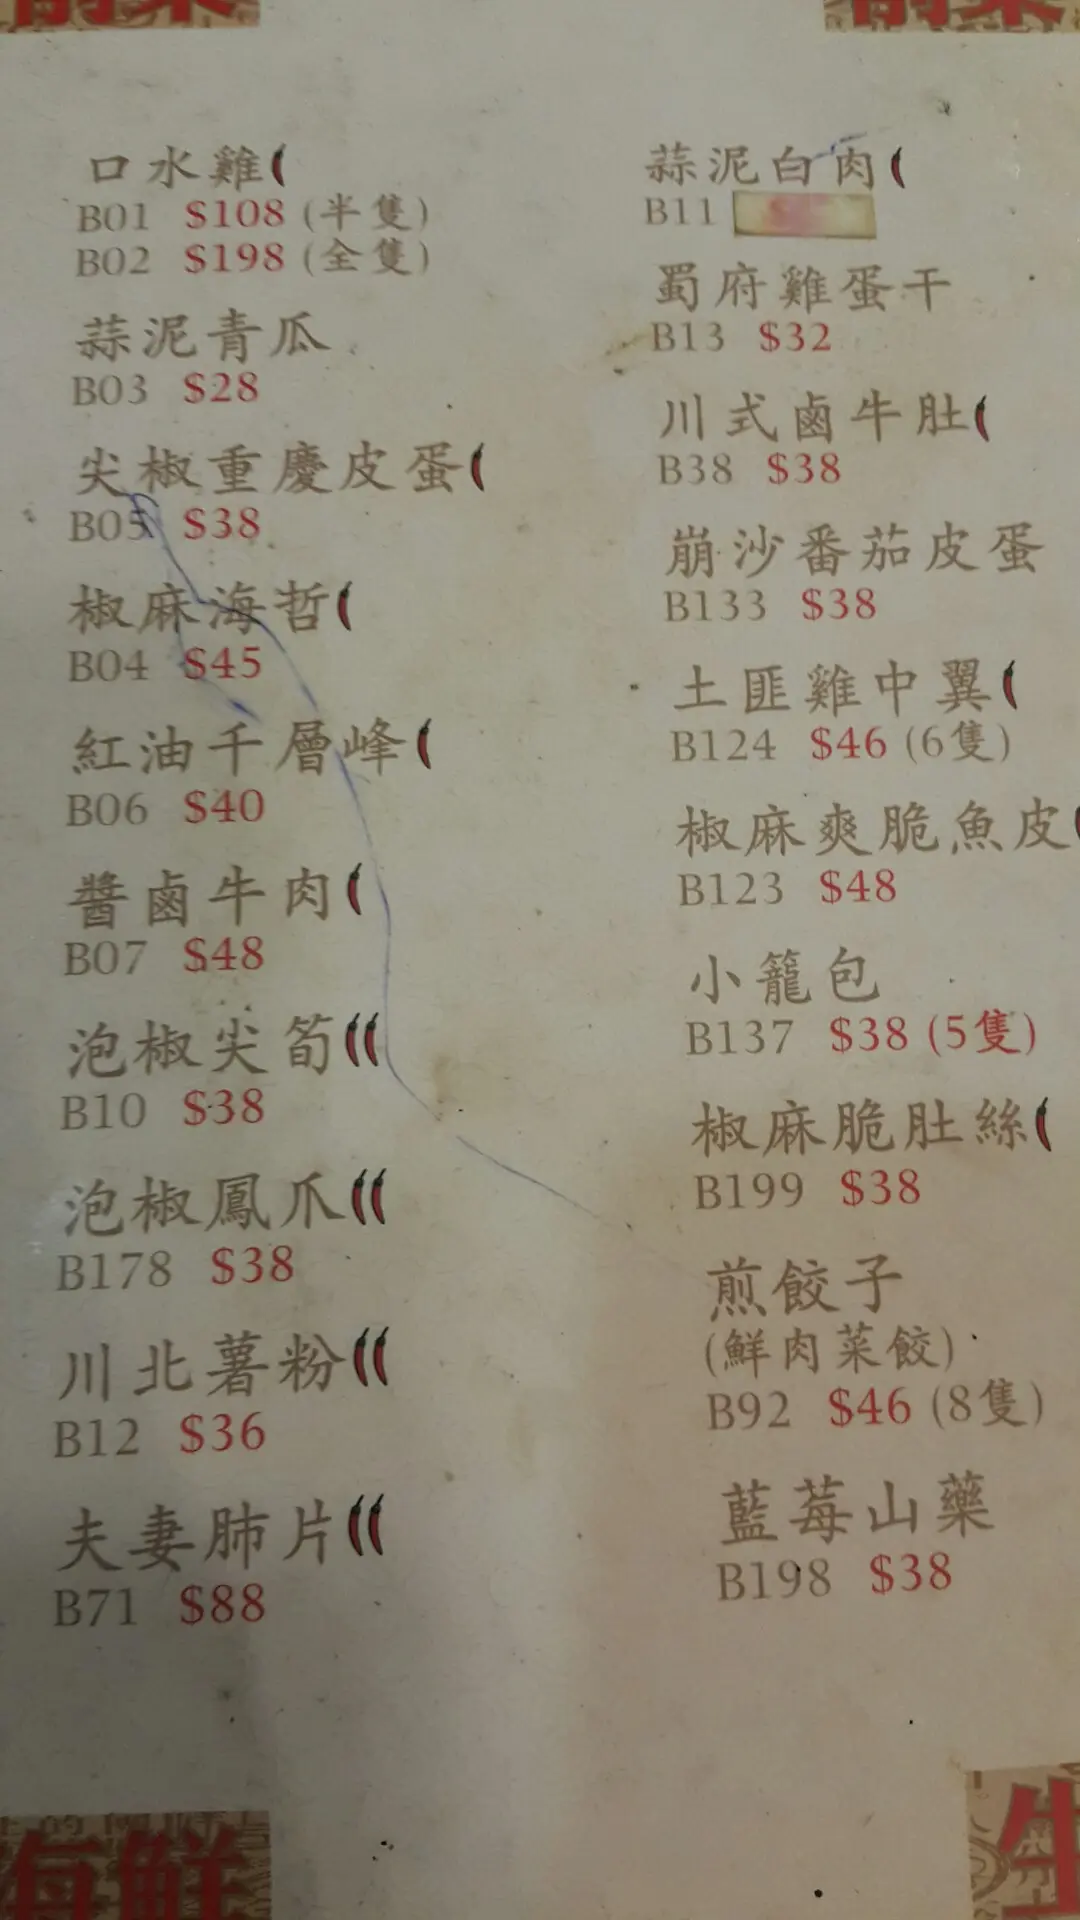 口水雞
B01 $108 (半隻)
B02 $198 (全隻)
蒜泥青瓜
B03 $28
尖椒重慶皮蛋
B05 $38
椒麻海哲
B04 $45
紅油千層峰
B06 $40
醬鹵牛肉
B07 $48
泡椒尖筍
B10 $38
泡椒鳳爪
B178 $38
川北薯粉
B12 $36
夫妻肺片
B71 $88
蒜泥白肉
B11
蜀府雞蛋干
B13 $32
川式鹵牛肚
B38 $38
崩沙番茄皮蛋
B133 $38
土匪雞中翼
B124 $46 (6隻)
椒麻爽脆魚皮
B123 $48
小籠包
B137 $38 (5隻)
椒麻脆肚絲
B199 $38
煎餃子
(鮮肉菜餃)
B92 $46 (8隻)
藍莓山藥
B198 $38
海鮮
生